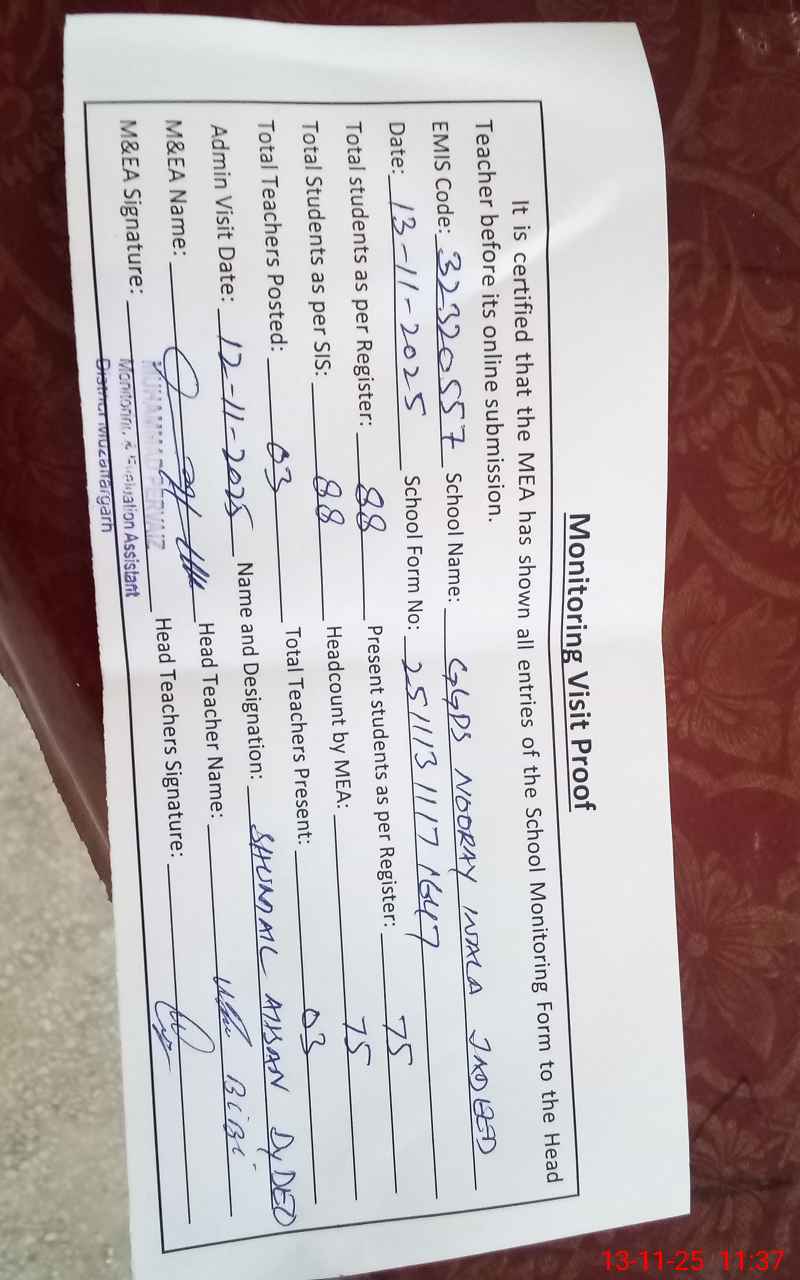 Monitoring Visit Proof
It is certified that the MEA has shown all entries of the School Monitoring Form to the Head
Teacher before its online submission.
EMIS Code: 32320557 School Name: GGPS NOORAY WALA
Date: 13-11-2025 School Form No: 2511131117
Total students as per Register: 88 Present students as per Register: 75
Total Students as per SIS: 88 Headcount by MEA: 75
Total Teachers Posted: 03 Total Teachers Present: 03
Admin Visit Date: 12-11-2025 Name and Designation: AHSAN Dy DEO
M&EA Name: Head Teacher Name: BiBi
M&EA Signature: Head Teachers Signature:
MUHAMMAD PERVAIZ
Monitoring & Evaluation Assistant
District Muzaffargarh
13-11-25 11:37